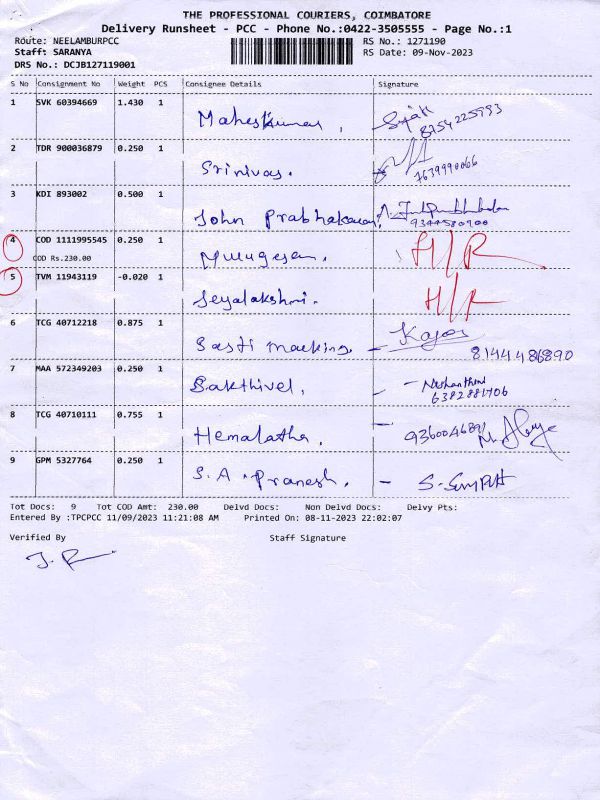 THE PROFESSIONAL COURIERS, COIMBATORE
Delivery Runsheet - PCC - Phone No.:0422-3505555 - Page No.:1
Route: NEELAMBURPCC RS No.: 1271190
Staff: SARANYA RS Date: 09-Nov-2023
DRS No.: DCJB127119001
S No Consignment No Weight PCS Consignee Details Signature
1 SVK 60394669 1.430 1
Maheskumar, 8754225993
2 TDR 900036879 0.250 1
Srinivas. 7639990066
3 KDI 893002 0.500 1
John Prabhakaran, 9344580900
4 COD 1111995545 0.250 1
COD Rs.230.00 Murugesan. H/R
5 TVM 11943119 -0.020 1
Jeyalakshmi. H/R
6 TCG 40712218 0.875 1
Sasti marking - 8144486890
7 MAA 572349203 0.250 1
Sakthivel, - Nishanthini
6382881706
8 TCG 40710111 0.755 1
Hemalatha, 9360046891
9 GPM 5327764 0.250 1
S.A. Pranesh. -
Tot Docs: 9 Tot COD Amt: 230.00 Delvd Docs: Non Delvd Docs: Delvy Pts:
Entered By :TPCPCC 11/09/2023 11:21:08 AM Printed On: 08-11-2023 22:02:07
Verified By Staff Signature